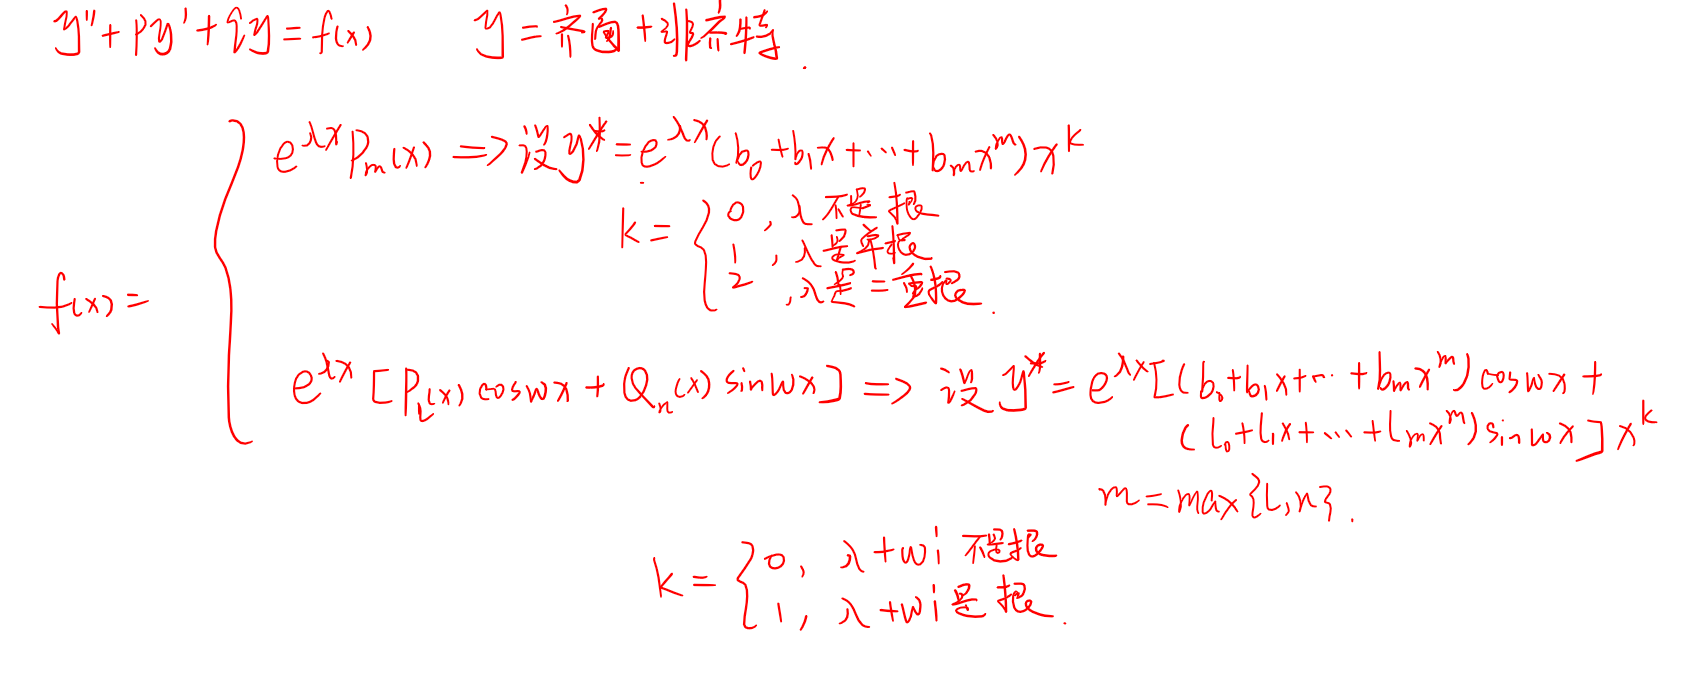 y''+py'+qy=f(x) y=齐通+非齐特.
e^{λx}P_m(x) => 设y*=e^{λx}(b_0+b_1x+···+b_mx^m)x^k
k={0, λ不是根
1, λ是单根
2, λ是二重根.
f(x)={
e^{λx}[P_l(x)coswx+Q_n(x)sinwx] => 设y*=e^{λx}[(b_0+b_1x+···+b_mx^m)coswx+
(l_0+l_1x+···+l_mx^m)sinwx]x^k
m=max{l,n}.
k={0, λ+wi不是根
1, λ+wi是根.